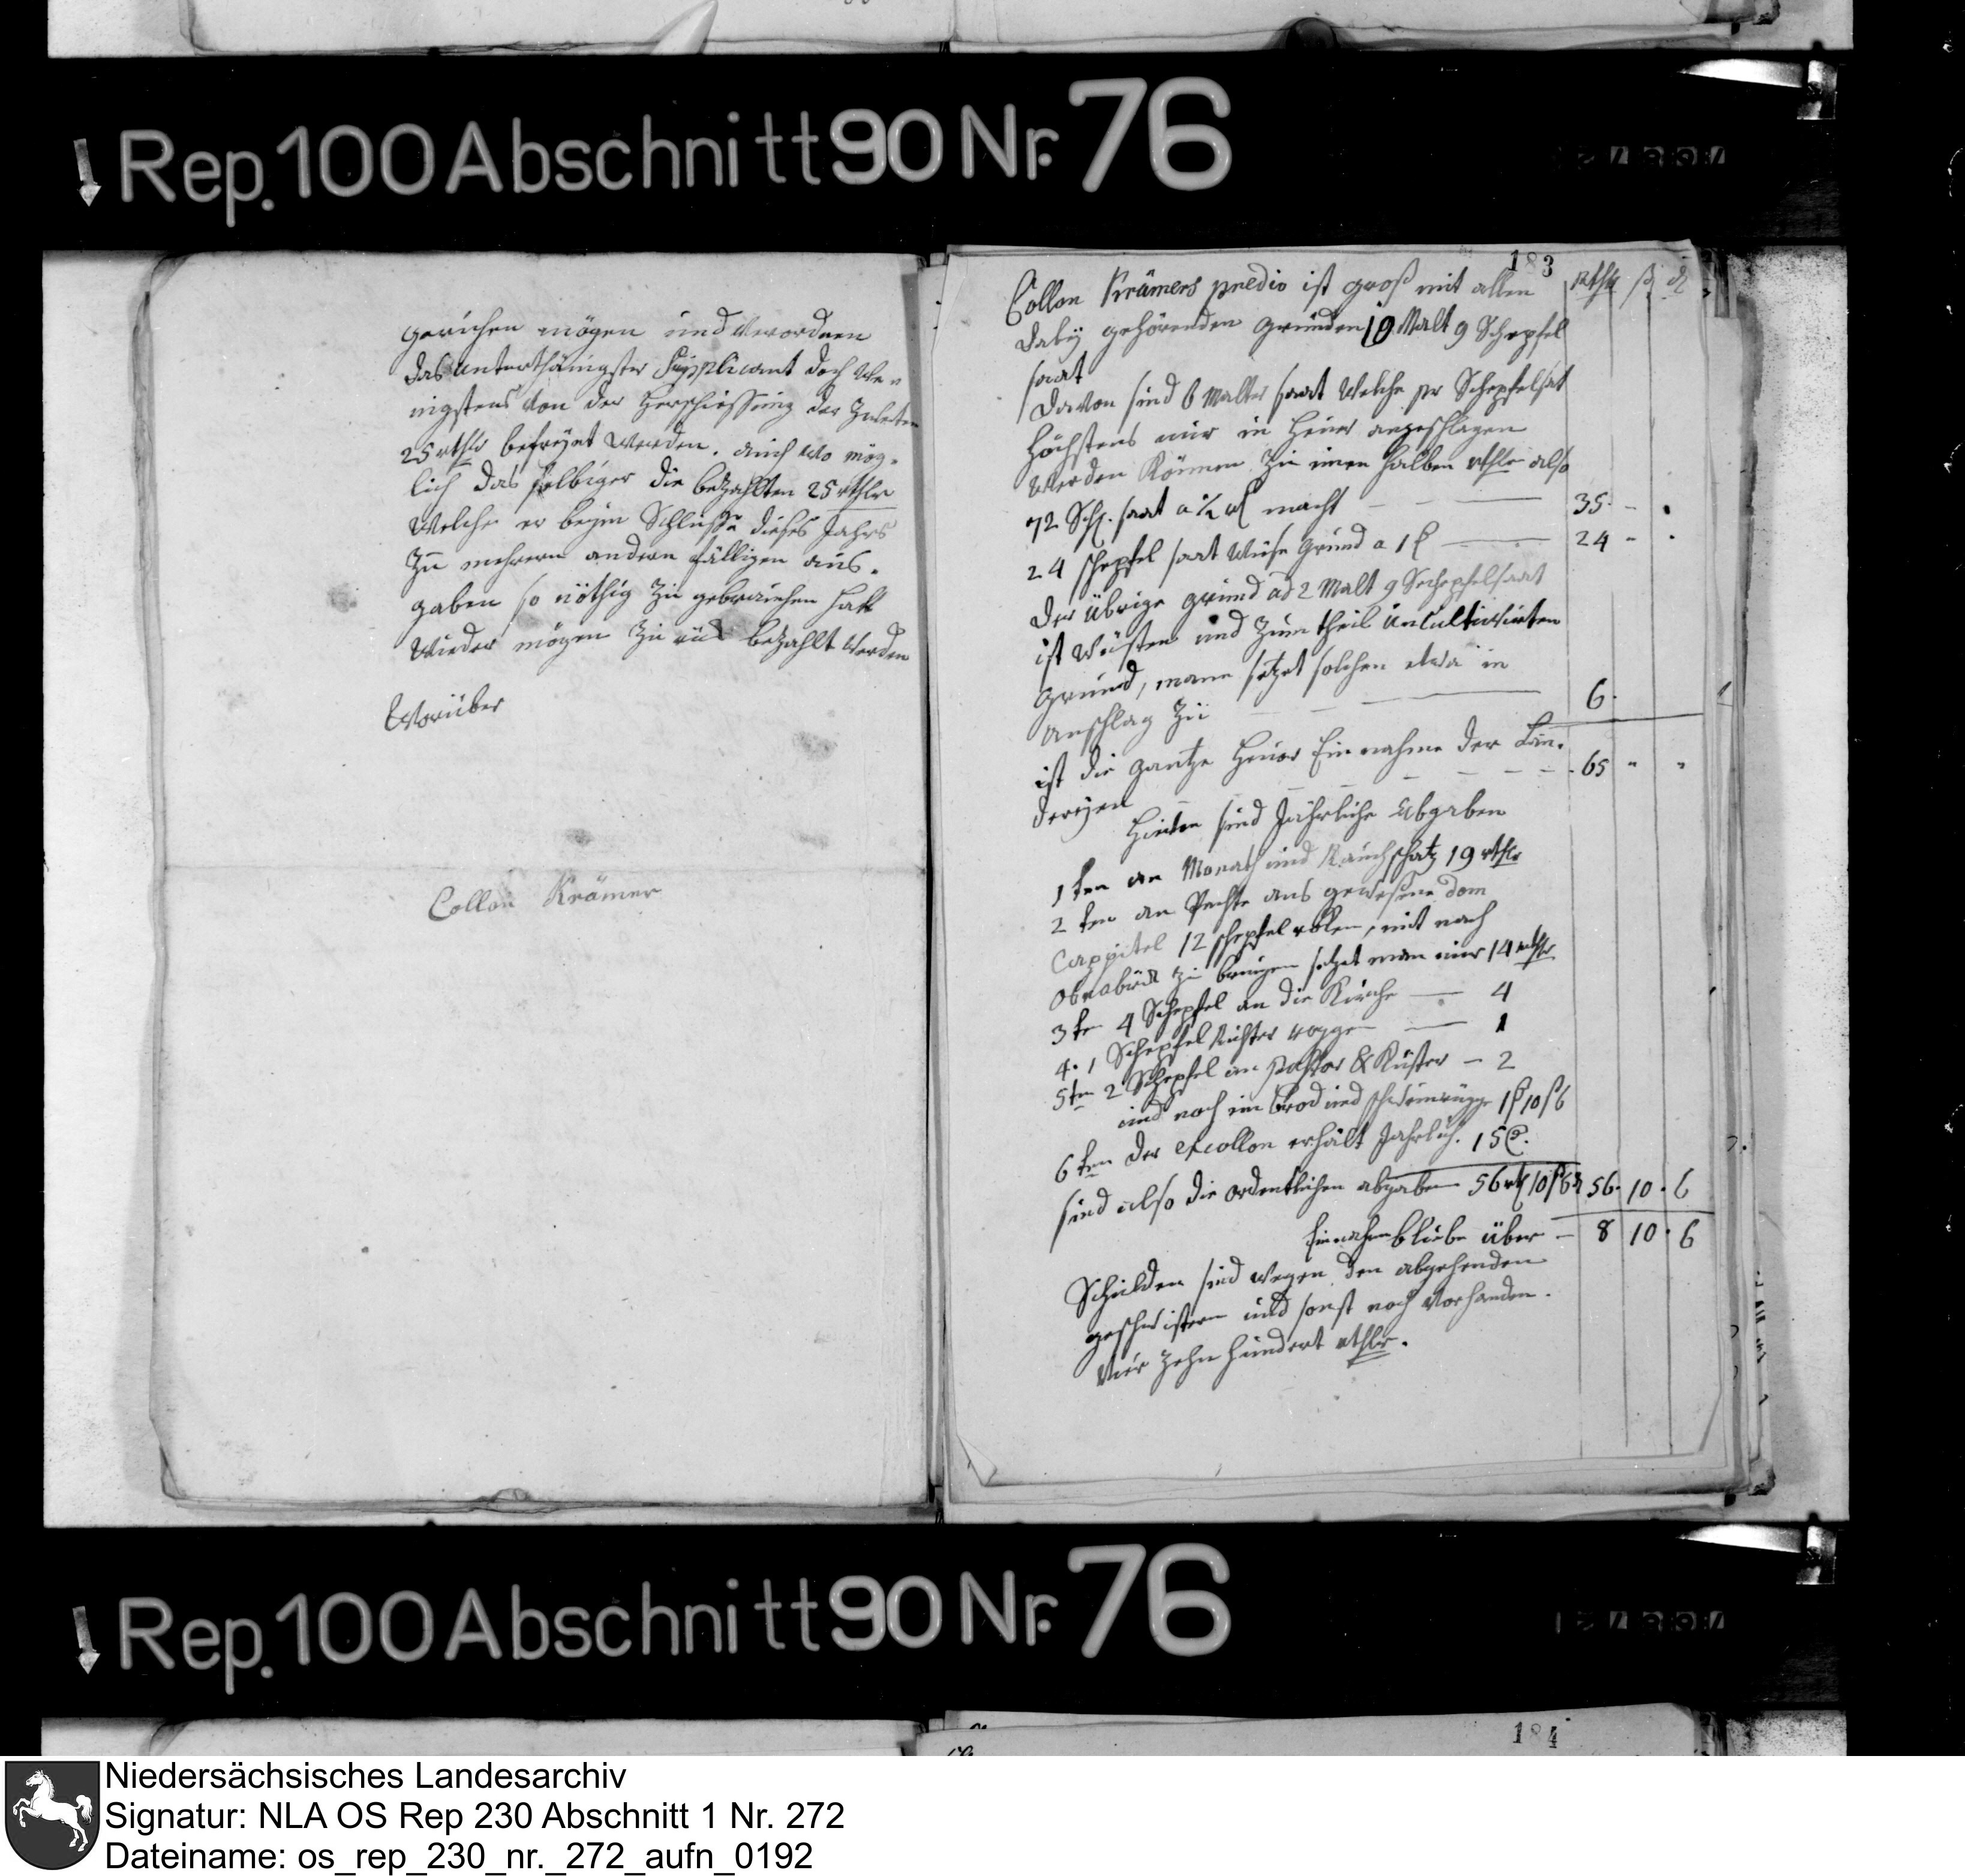 Rep. 100 Abschnitt 90 Nr. 76
geruhen mögen und verordnen
das unterthänigster Supplicant doch we-
nigstens von der Herschiessung der zweiten
25 rthlr befreyet werden. auch wo mög-
lich das selbiger die bezahlten 25 rthlr
welche er beym Schlusse dieses Jahrs
zu mehrern andern fälligen aus-
gaben so nöthig zu gebrauchen hat
wieder mögen zurück bezahlt werden
Worüber
Collon Krämer
183
Collon Krämers predio ist groß mit allen rthlr ß d
daby gehörenden gründen 19 Malt 9 Schepfel
saat
davon sind 6 Malter saat welche pr Schepfelsat
höchstens nur in Heuer angeschlagen
werden können zu einen halben rthlr also
72 Sch. saat a ½ rt macht 35
24 schepfel saat Wiese grund a 1 24
der übrige grund ad 2 Malt 9 Schepfelsaat
ist wüsten und zum theil unCultivirten
grund, mann setzet solchen etwa in
anschlag zu 6
ist die gantze Heuer Einnahme der Län-
dereyen 65
Hievon sind Jährliche Abgaben
1 ten an Monath und Rauchschatz 19 rthlr
2 ten an Pachte ans gewesene Dom
Cappitel 12 schepfel rocken, mit nach
Osnabrück zu bringen setzet man nur 14 rthlr
3 te 4 Schepfel an die Kirche 4
4. 1 Schepfel Richter rogge 1
5ten 2 Schepfel an Pastor & Küster 2
und noch im brod und schweinrügge 1 10 ß 6
6 ten der Excollon erhält Jahrlich. 15
sind also die ordentlichen abgaben 56 rt 10 ß 6 56. 10. 6
Einnahm bliebe über 8 10. 6
Schulden sind wegen den abgehenden
geschwistern und sonst noch vorhanden.
Vier zehn hundert rthlr.
Rep. 100 Abschnitt 90 Nr. 76
184
Niedersächsisches Landesarchiv
Signatur: NLA OS Rep 230 Abschnitt 1 Nr. 272
Dateiname: os_rep_230_nr._272_aufn_0192